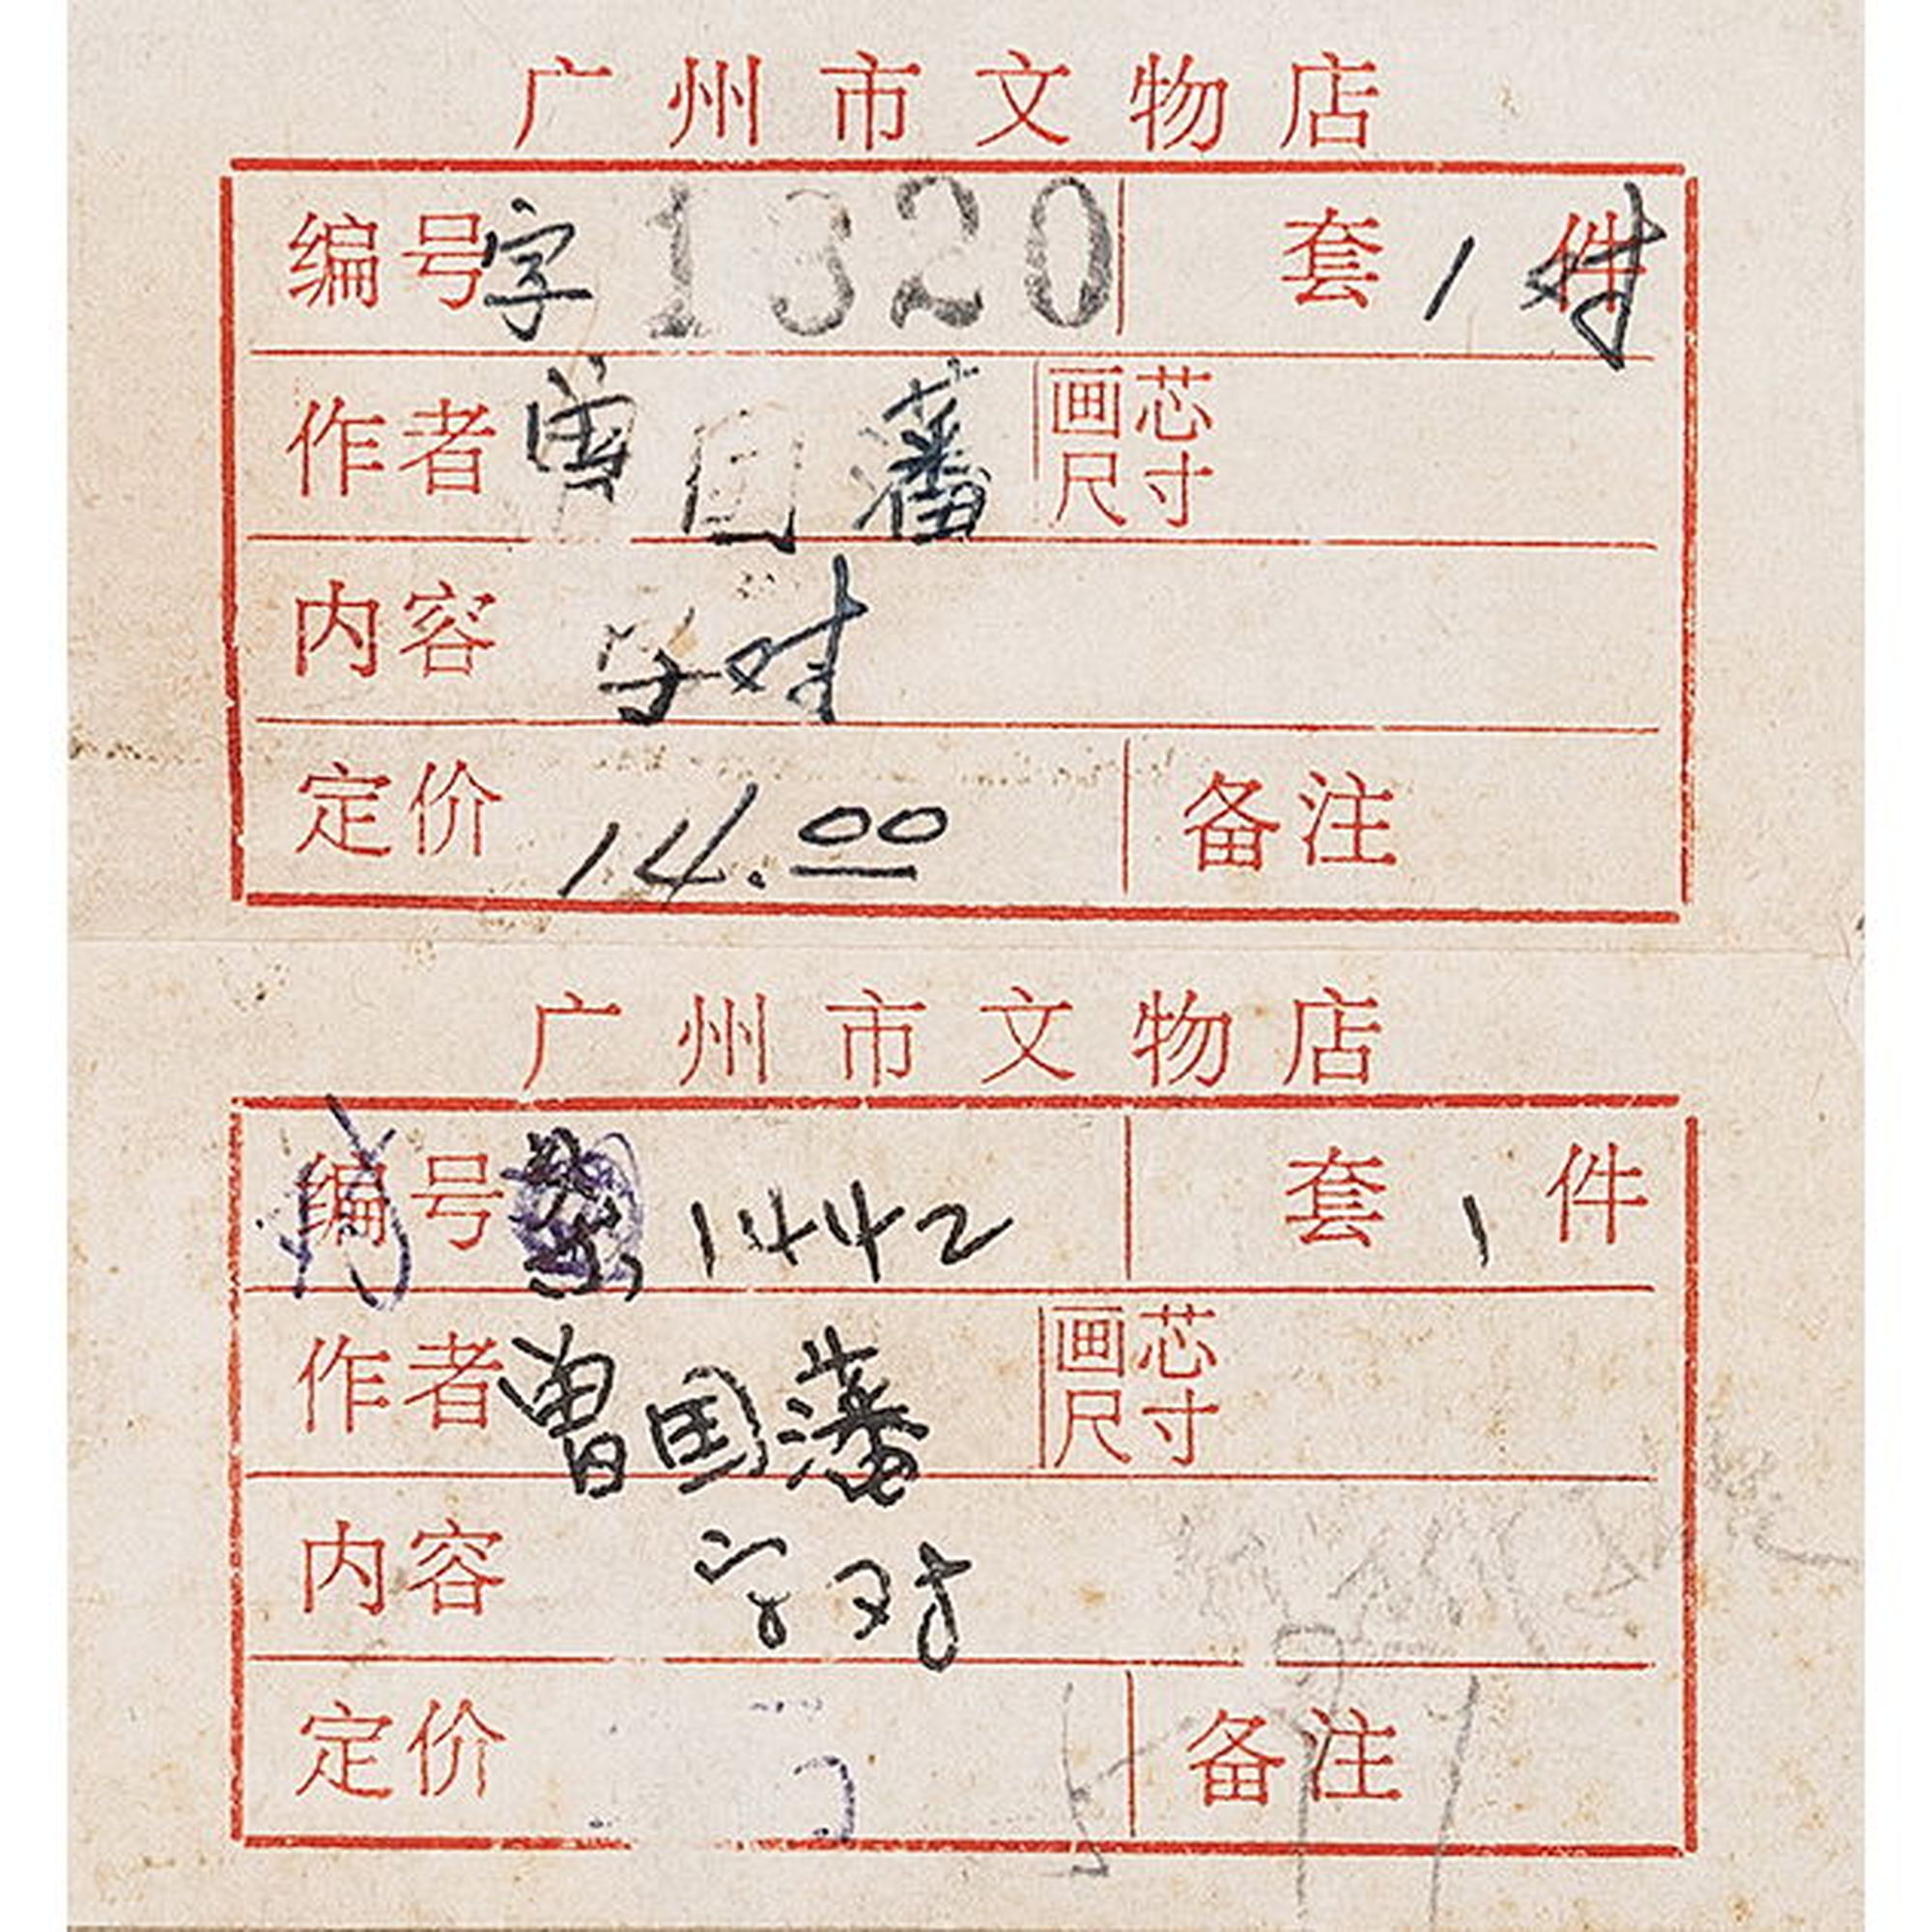 广州市文物店
编号 字 1320 套 1 件 对
作者 曾国藩 画芯尺寸
内容 字对
定价 14.00 备注
广州市文物店
编号 1442 套 1 件
作者 曾国藩 画芯尺寸
内容 字对
定价 备注